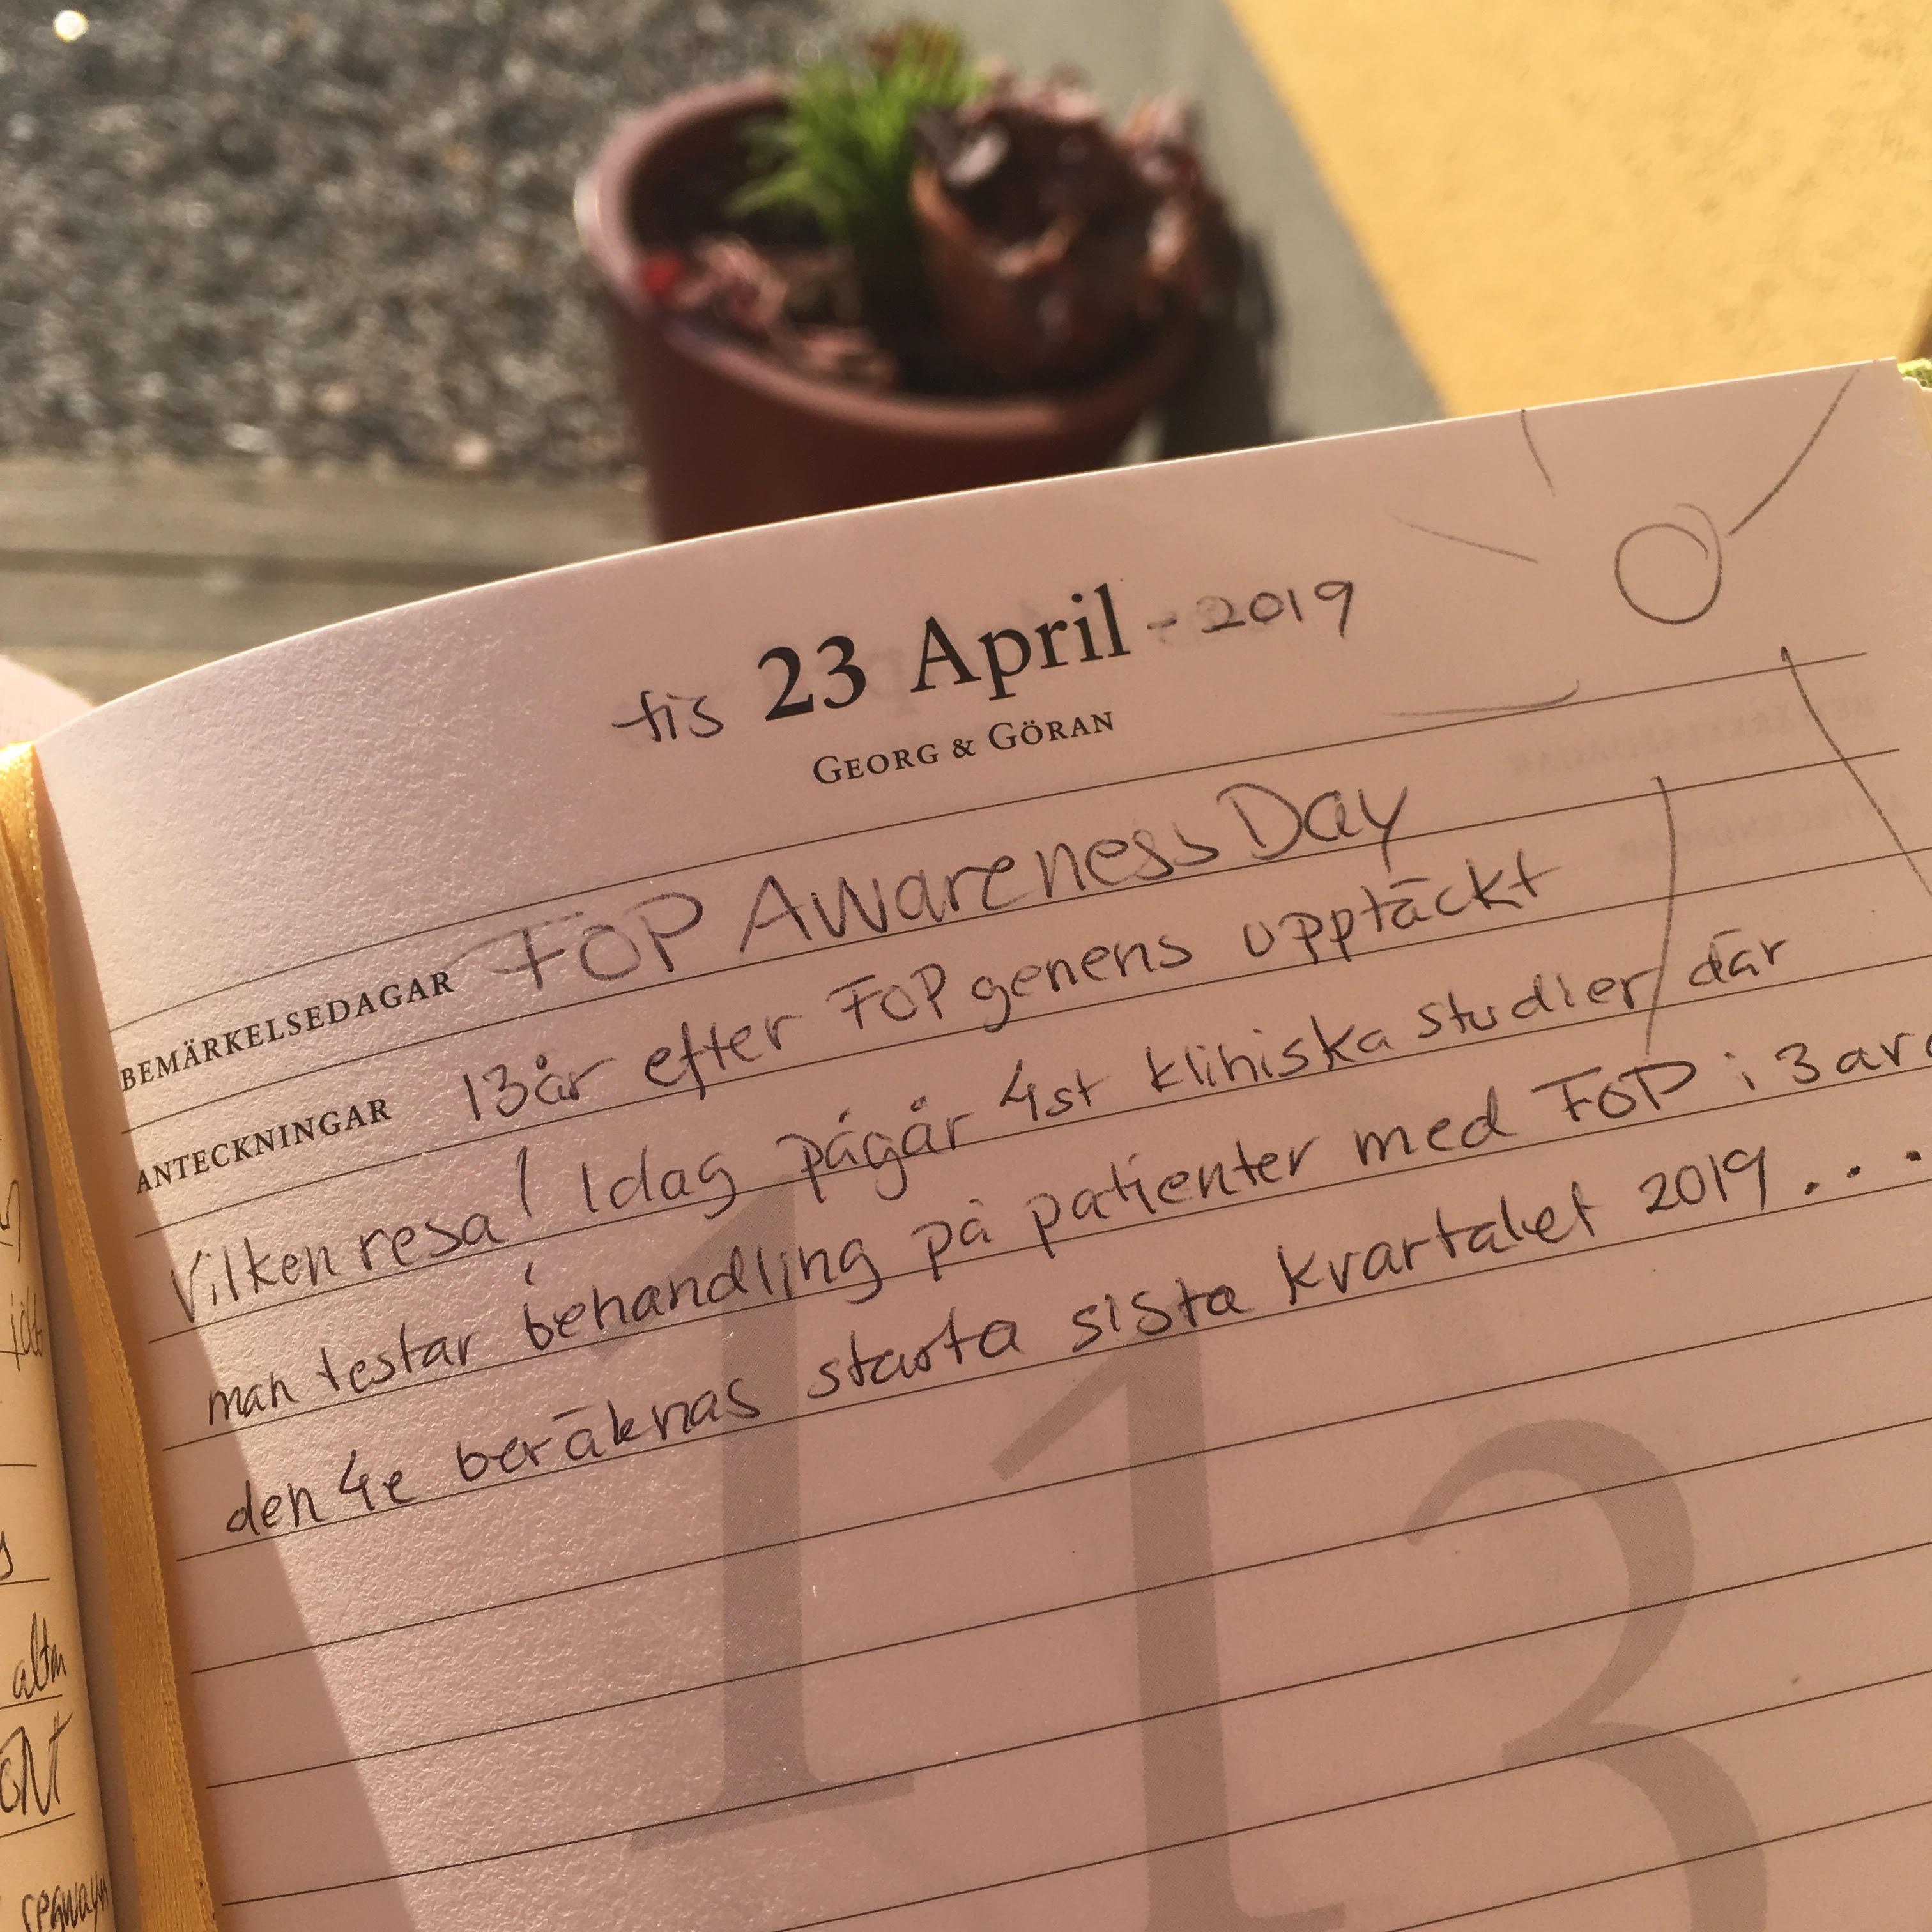 tis 23 April - 2019
GEORG & GÖRAN
BEMÄRKELSEDAGAR FOP Awareness Day
ANTECKNINGAR 13år efter FOP genens upptäckt
Vilken resa! Idag pågår 4st kliniska studier där
man testar behandling på patienter med FOP i 3 av
den 4e beräknas starta sista kvartalet 2019...
113